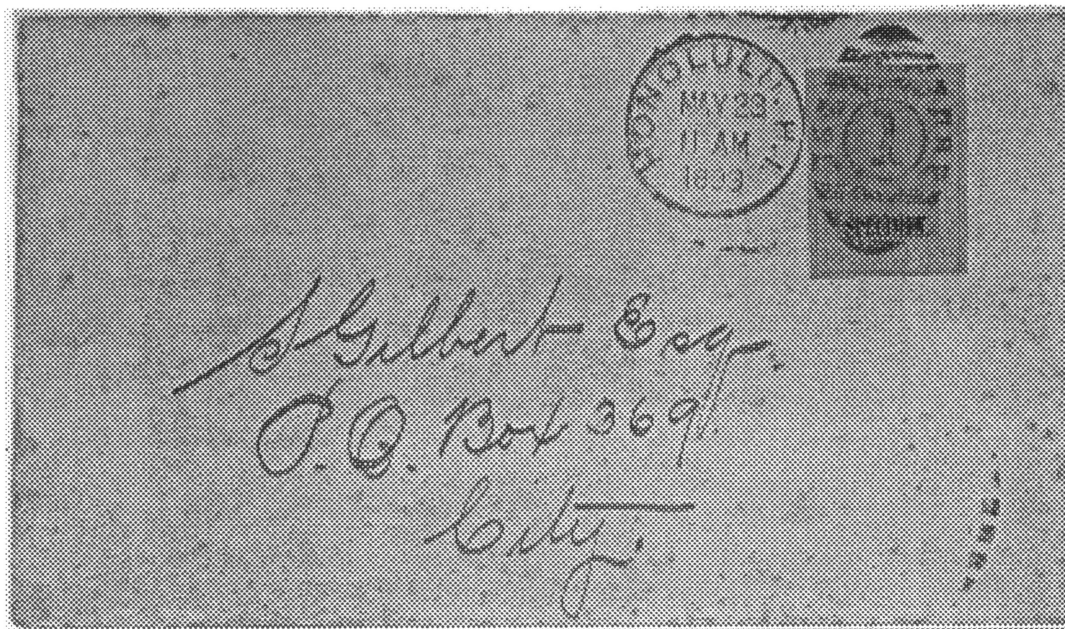 HONOLULU. H. I.
MAY 28
11 AM
1893
S Gilbert Esq.
P.O. Box 369
City